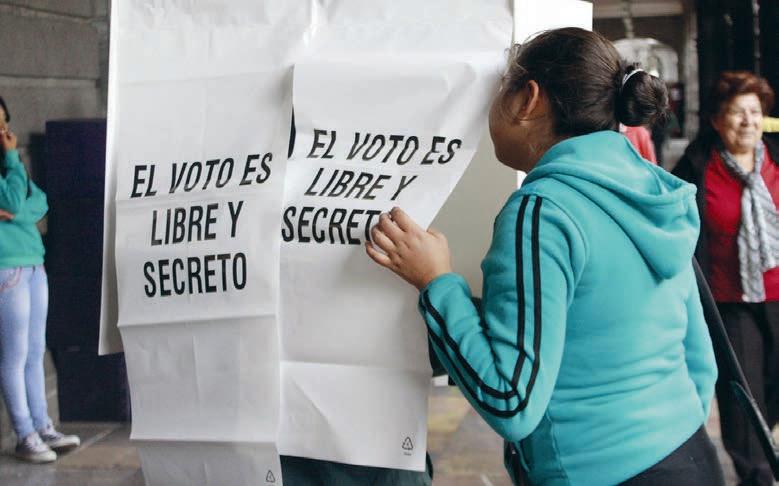 EL VOTO ES
LIBRE Y
SECRETO
EL VOTO ES
LIBRE Y
SECRETO